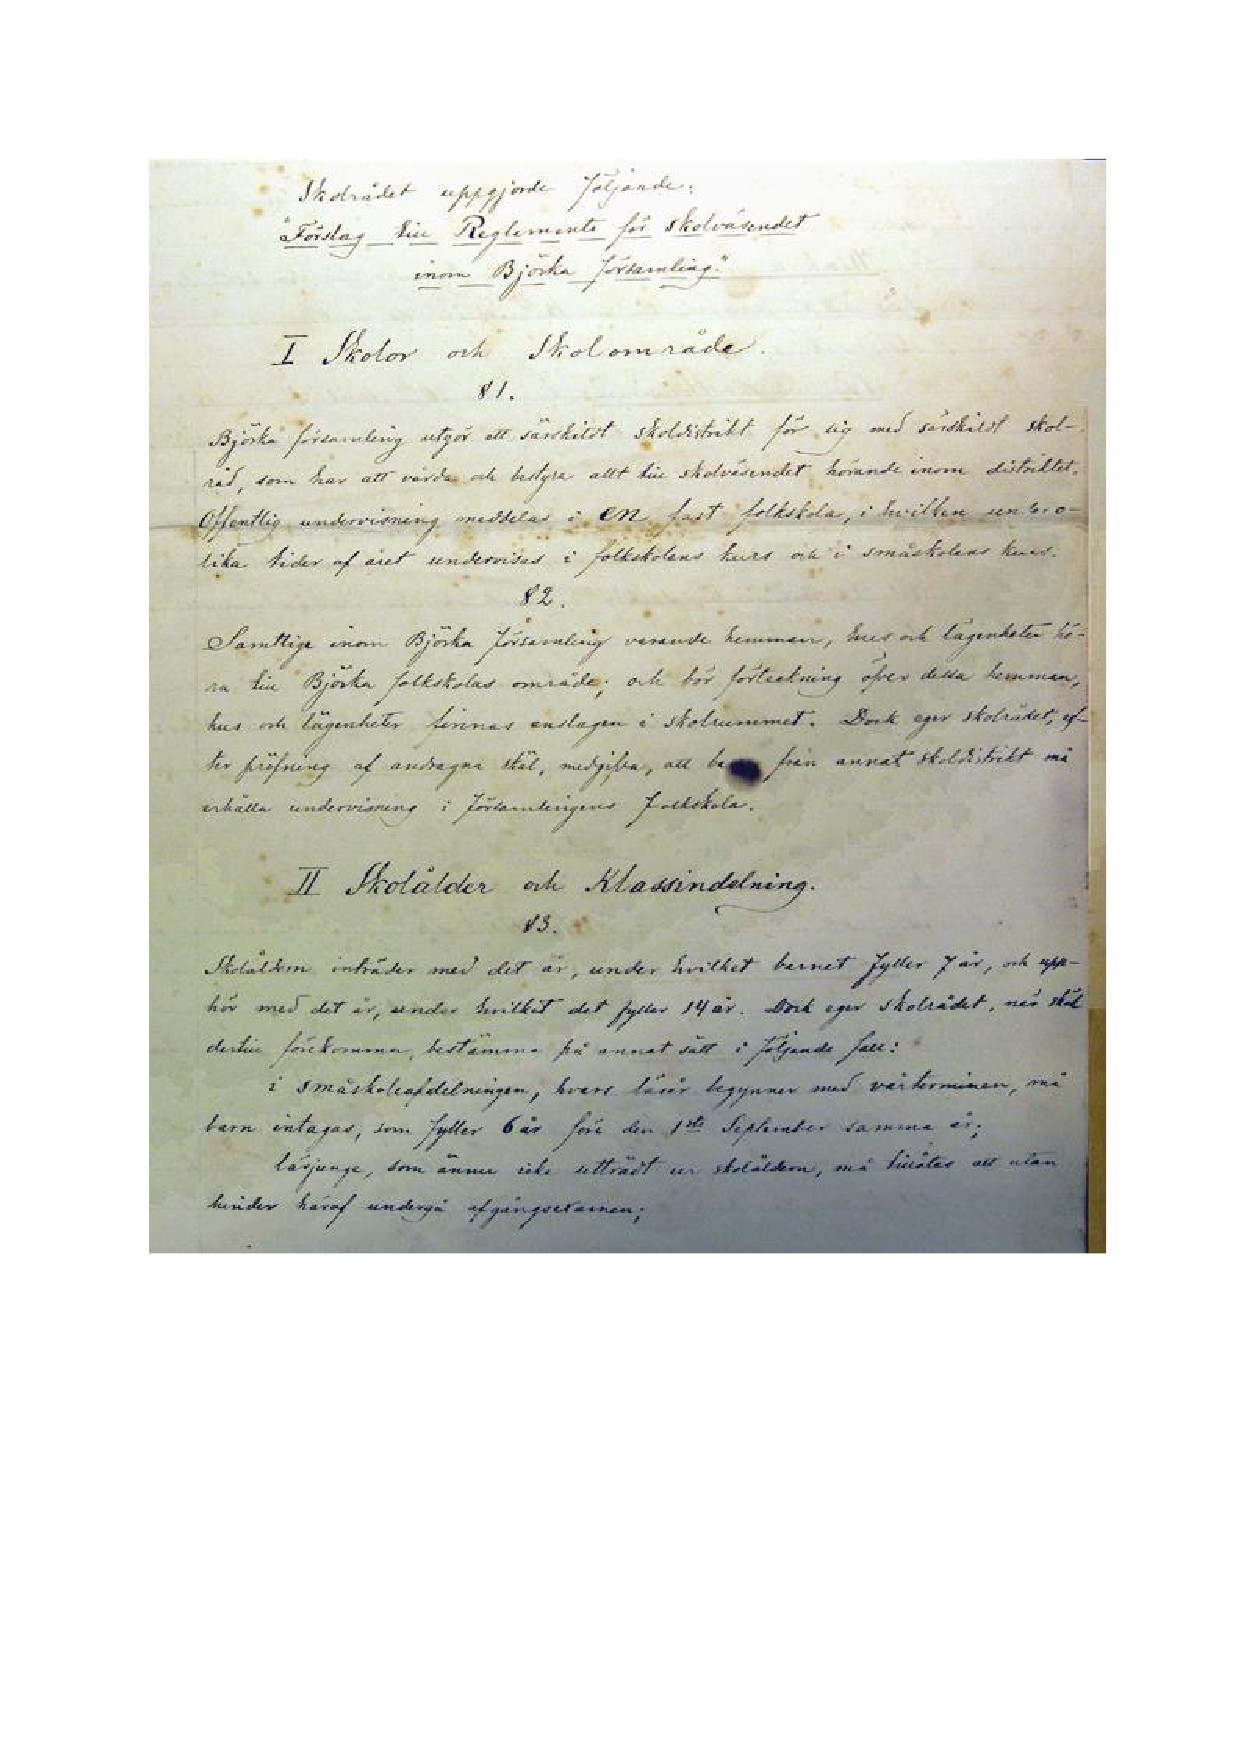 Skolrådet uppgjorde följande:
"Förslag till Reglemente för skolväsendet
inom Björka församling."
I Skolor och Skolområde.
§1.
Björka församling utgör ett särskildt skoldistrikt för sig med särskildt skol-
råd, som har att vårda och bestyra allt till skolväsendet hörande inom distriktet.
Offentlig undervisning meddelas i en fast folkskola, i hvilken under o-
lika tider af året undervisas i folkskolans kurs och i småskolans kurs.
§2.
Samtliga inom Björka församling varande hemman, hus och lägenheter hö-
ra till Björka folkskolas område; och bör förteckning öfver dessa hemman,
hus och lägenheter finnas anslagen i skolrummet. Dock eger skolrådet, ef-
ter pröfning af andragna skäl, medgifva, att ba från annat skoldistrikt må
erhålla undervisning i församlingens folkskola.
II Skolålder och Klassindelning.
§3.
Skolåldern inträder med det år, under hvilket barnet fyller 7 år, och upp-
hör med det år, under hvilket det fyller 14 år. Dock eger skolrådet, när skäl
dertill förekomma, bestämma på annat sätt i följande fall:
i småskoleafdelningen, hvars läsår begynner med vårterminen, må
barn intagas, som fyller 6 år före den 1sta September samma år;
lärjunge, som ännu icke utträdt ur skolåldern, må tillåtas att utan
hinder häraf undergå afgångsexamen;